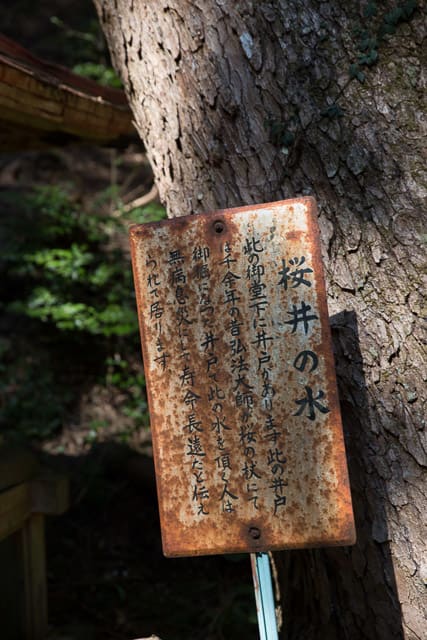 桜井の水
此の御堂下に井戸があります此の井戸
は千余年の昔弘法大師が桜の杖にて
御掘になつた井戸で此の水を頂く人は
無病息災にして寿命長遠だと伝え
られて居ります